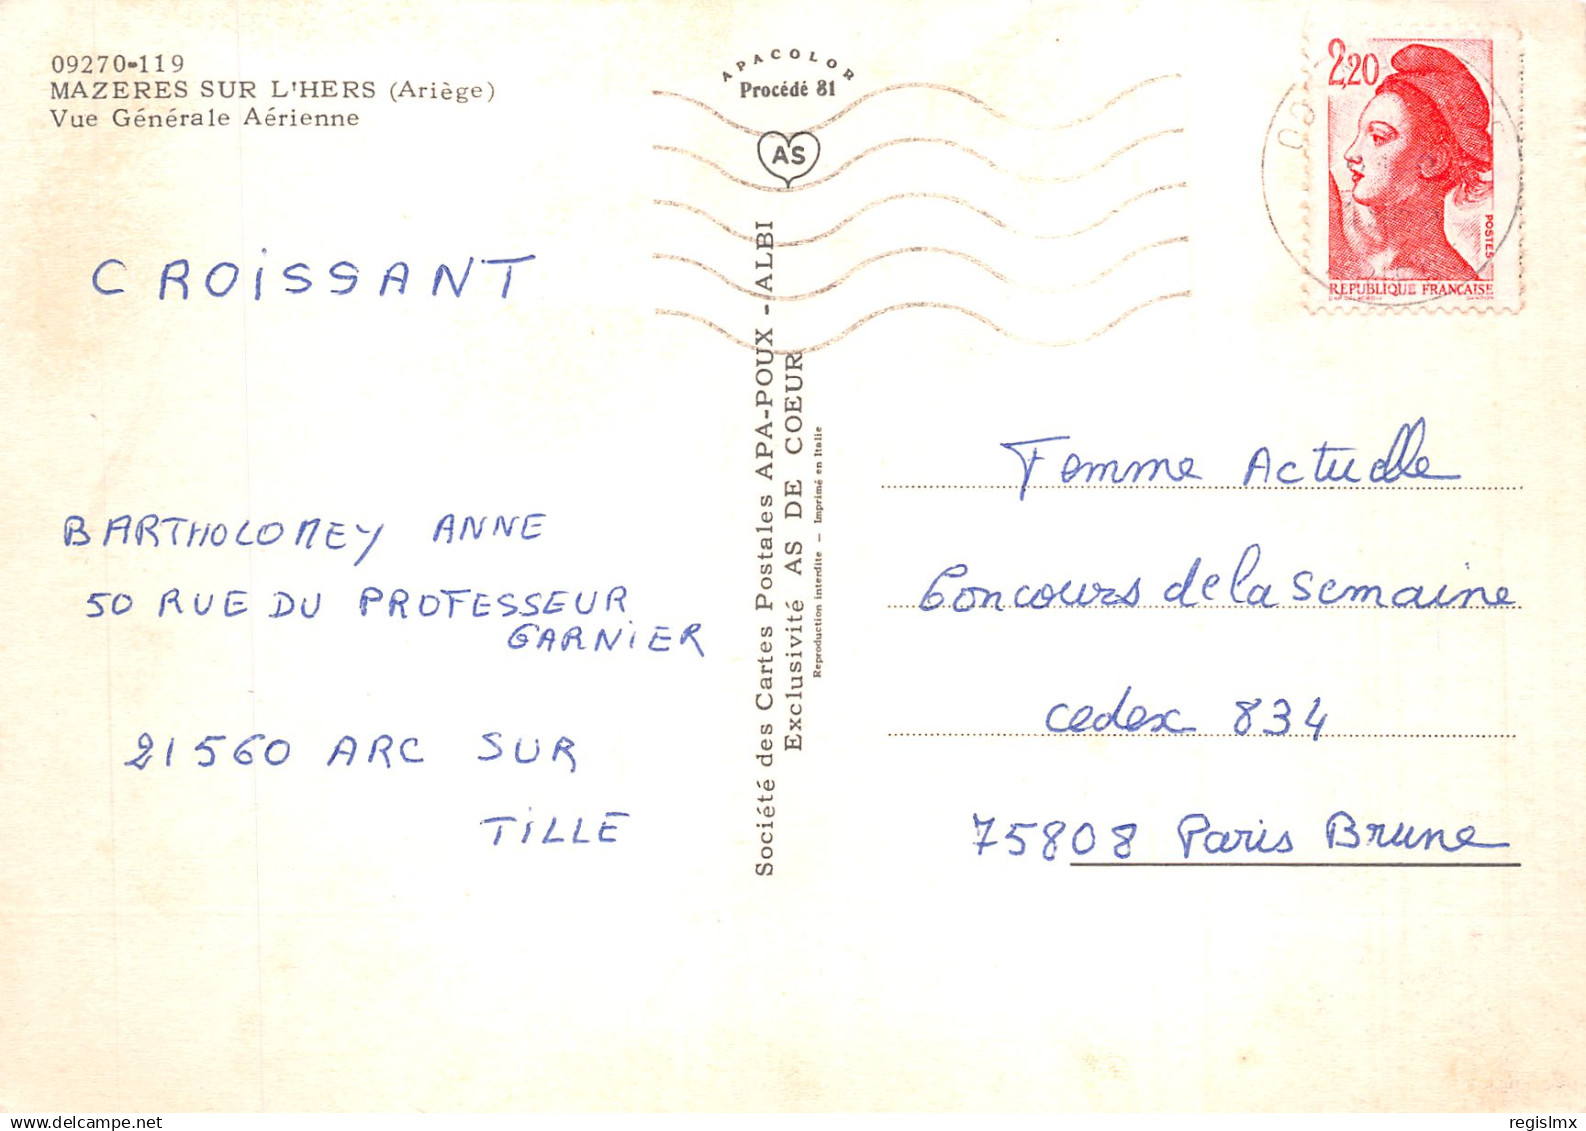 09270-119
MAZERES SUR L'HERS (Ariège)
Vue Générale Aérienne
APACOLOR
Procédé 81
AS
CROISSANT
BARTHOLOMEY ANNE
50 RUE DU PROFESSEUR
GARNIER
21560 ARC SUR
TILLE
Société des Cartes Postales APA-POUX - ALBI
Exclusivité AS DE COEUR
Reproduction Interdite - Imprimé en Italie
2,20
POSTES
REPUBLIQUE FRANCAISE
Femme Actuelle
Concours de la semaine
cedex 834
75808 Paris Brune
regislmx